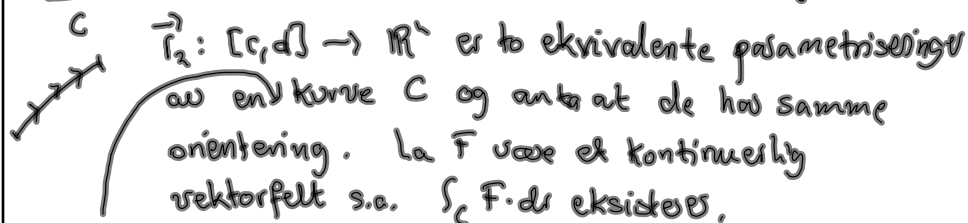 C
r⃗₂: [c,d] → ℝⁿ er to ekvivalente parametriseringer
av en kurve C og anta at de har samme
orientering. La F̄ være et kontinuerlig
vektorfelt s.a. ∫_C F̄·dr eksisterer.